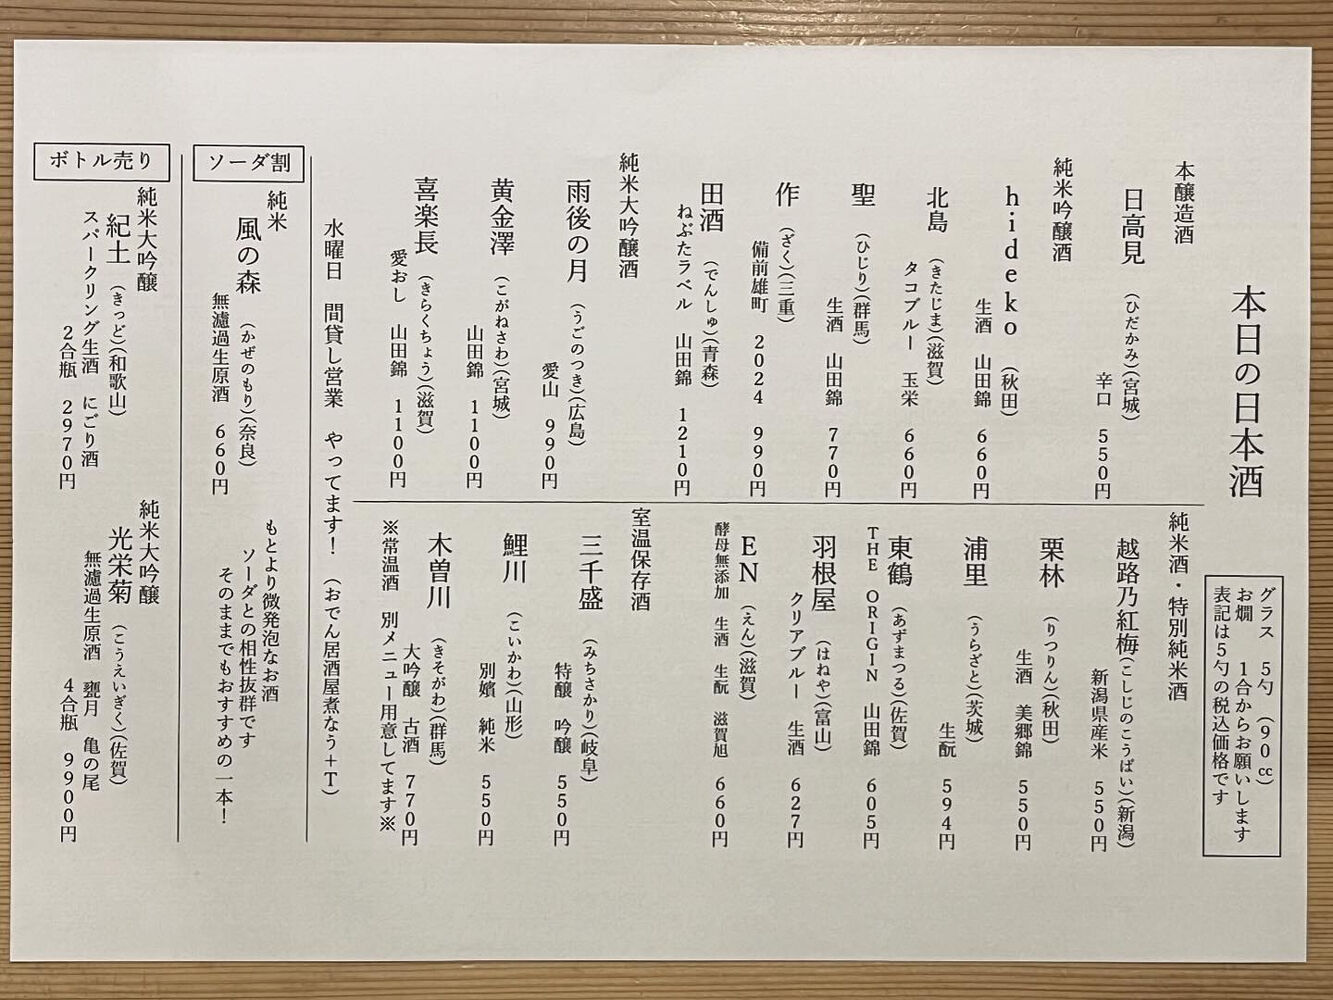 本日の日本酒
グラス 5勺 (90㏄)
お燗 1合からお願いします
表記は5勺の税込価格です
本醸造酒
日高見 (ひだかみ)(宮城)
辛口 550円
純米吟醸酒
hideko (秋田)
生酒 山田錦 660円
北島 (きたじま)(滋賀)
タコブルー 玉栄 660円
聖 (ひじり)(群馬)
生酒 山田錦 770円
作 (ざく)(三重)
備前雄町 2024 990円
田酒 (でんしゅ)(青森)
ねぶたラベル 山田錦 1210円
純米大吟醸酒
雨後の月 (うごのつき)(広島)
愛山 990円
黄金澤 (こがねさわ)(宮城)
山田錦 1100円
喜楽長 (きらくちょう)(滋賀)
愛おし 山田錦 1100円
純米酒・特別純米酒
越路乃紅梅(こしじのこうばい)(新潟)
新潟県産米 550円
栗林 (りつりん)(秋田)
生酒 美郷錦 550円
浦里 (うらざと)(茨城)
生酛 594円
東鶴 (あずまつる)(佐賀)
THE ORIGIN 山田錦 605円
羽根屋 (はねや)(富山)
クリアブルー 生酒 627円
EN (えん)(滋賀)
酵母無添加 生酒 生酛 滋賀旭 660円
室温保存酒
三千盛 (みちさかり)(岐阜)
特醸 吟醸 550円
鯉川 (こいかわ)(山形)
別嬪 純米 550円
木曽川 (きそがわ)(群馬)
大吟醸 古酒 770円
※常温酒 別メニュー用意してます※
水曜日 間貸し営業 やってます! (おでん居酒屋煮なう+T)
ソーダ割
純米
風の森 (かぜのもり)(奈良)
無濾過生原酒 660円
もとより微発泡なお酒
ソーダとの相性抜群です
そのままでもおすすめの一本!
ボトル売り
純米大吟醸
紀土 (きっど)(和歌山)
スパークリング生酒 にごり酒
2合瓶 2970円
純米大吟醸
光栄菊 (こうえいぎく)(佐賀)
無濾過生原酒 甕月 亀の尾
4合瓶 9900円